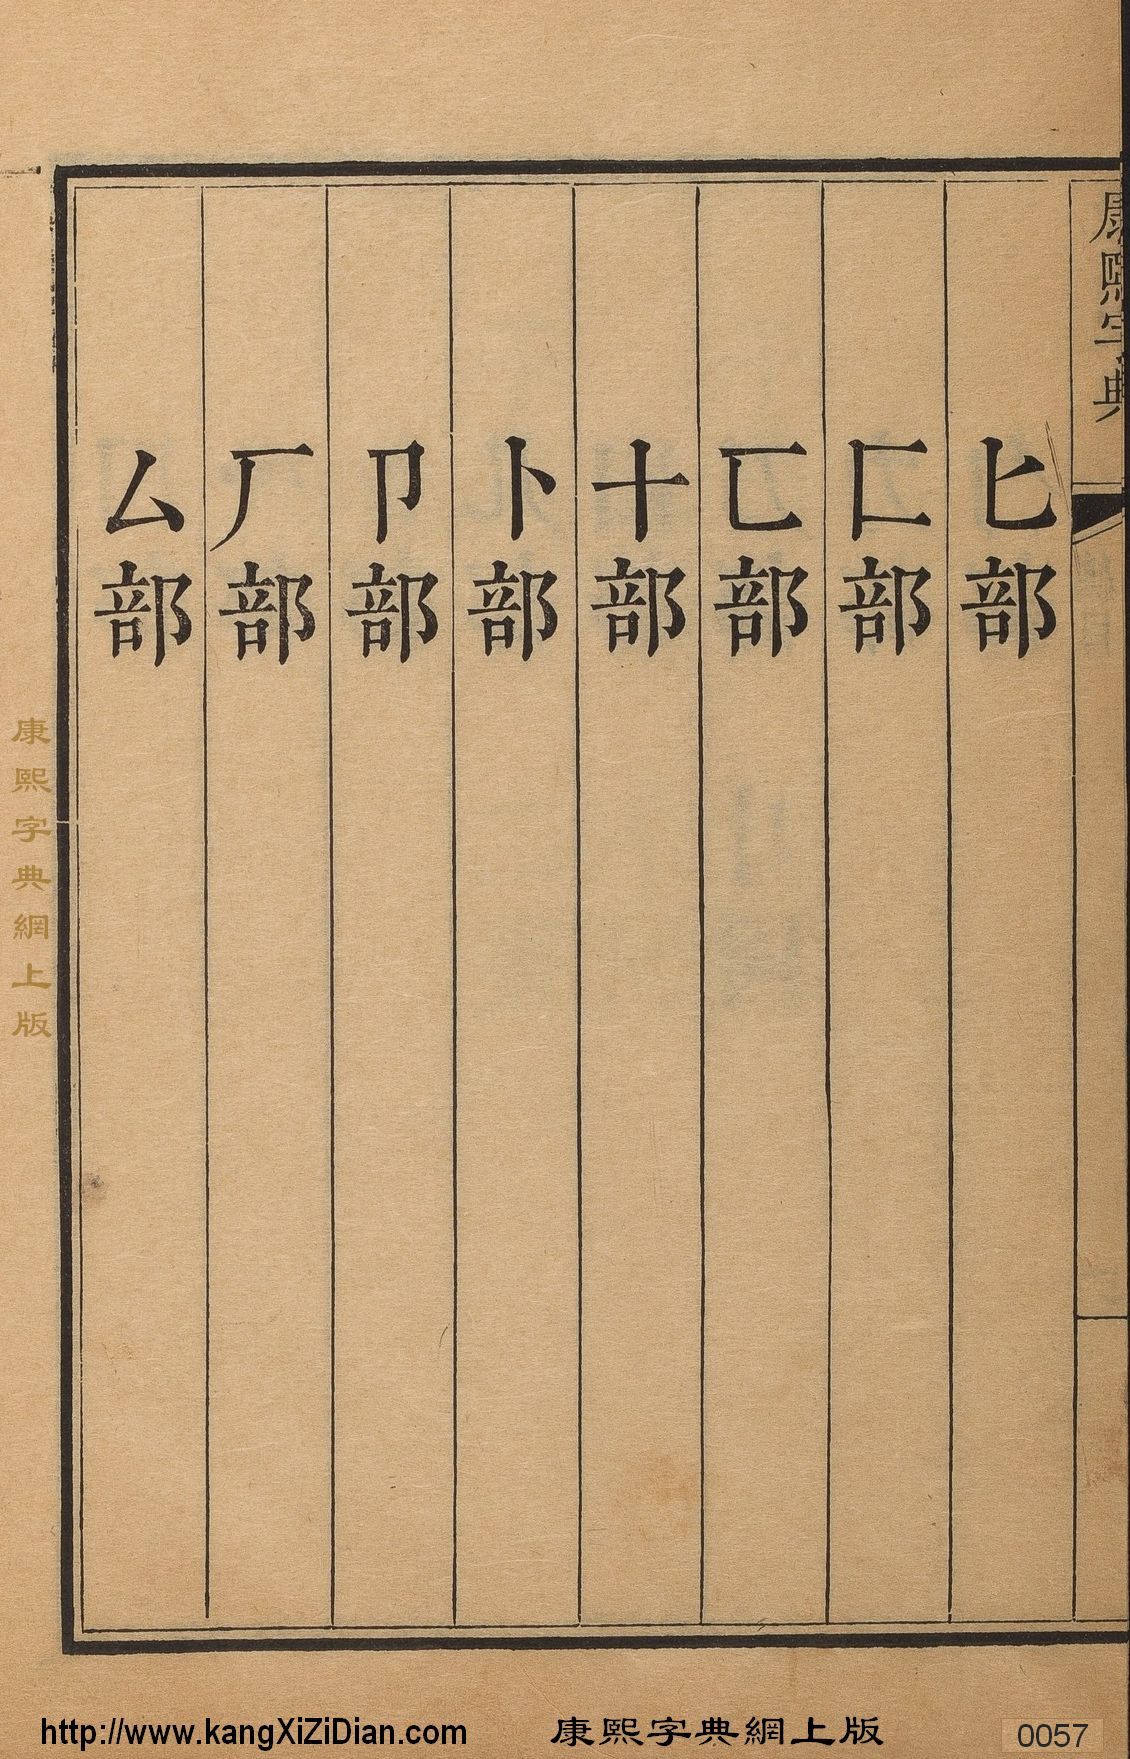 康熙字典
匕部
匚部
匸部
十部
卜部
卩部
厂部
厶部
康熙字典網上版
http://www.kangXiZiDian.com 康熙字典網上版 0057